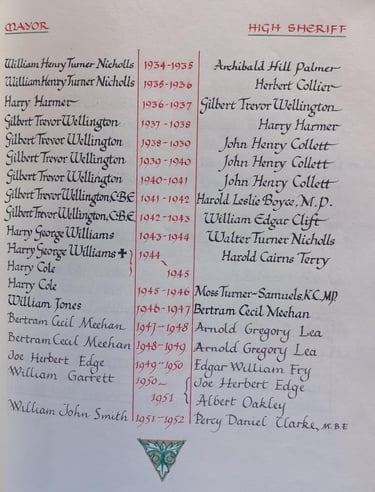 MAYOR HIGH SHERIFF
William Henry Turner Nicholls 1934-1935 Archibald Hill Palmer
William Henry Turner Nicholls 1935-1936 Herbert Collier
Harry Harmer 1936-1937 Gilbert Trevor Wellington
Gilbert Trevor Wellington 1937-1938 Harry Harmer
Gilbert Trevor Wellington 1938-1939 John Henry Collett
Gilbert Trevor Wellington 1939-1940 John Henry Collett
Gilbert Trevor Wellington 1940-1941 John Henry Collett
Gilbert Trevor Wellington, C.B.E. 1941-1942 Harold Leslie Boyce, M.P.
Gilbert Trevor Wellington, C.B.E. 1942-1943 William Edgar Clift
Harry George Williams 1943-1944 Walter Turner Nicholls
Harry George Williams ✝ 1944 Harold Cairns Terry
Harry Cole 1945
Harry Cole 1945-1946 Moss Turner-Samuels, K.C., M.P.
William Jones 1946-1947 Bertram Cecil Meehan
Bertram Cecil Meehan 1947-1948 Arnold Gregory Lea
Bertram Cecil Meehan 1948-1949 Arnold Gregory Lea
Joe Herbert Edge 1949-1950 Edgar William Fry
William Garrett 1950- Joe Herbert Edge
1951 Albert Oakley
William John Smith 1951-1952 Percy Daniel Clarke, M.B.E